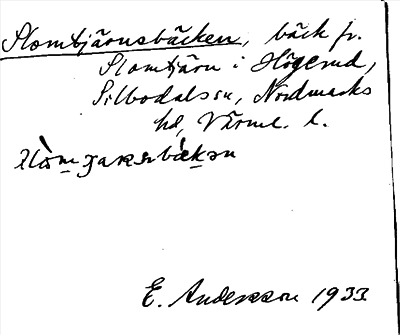 Slomtjärnsbäcken, bäck fr.
Slomtjärn i Högerud,
Silbodals sn, Nordmarks
hd, Värml. l.
E. Andersson 1933